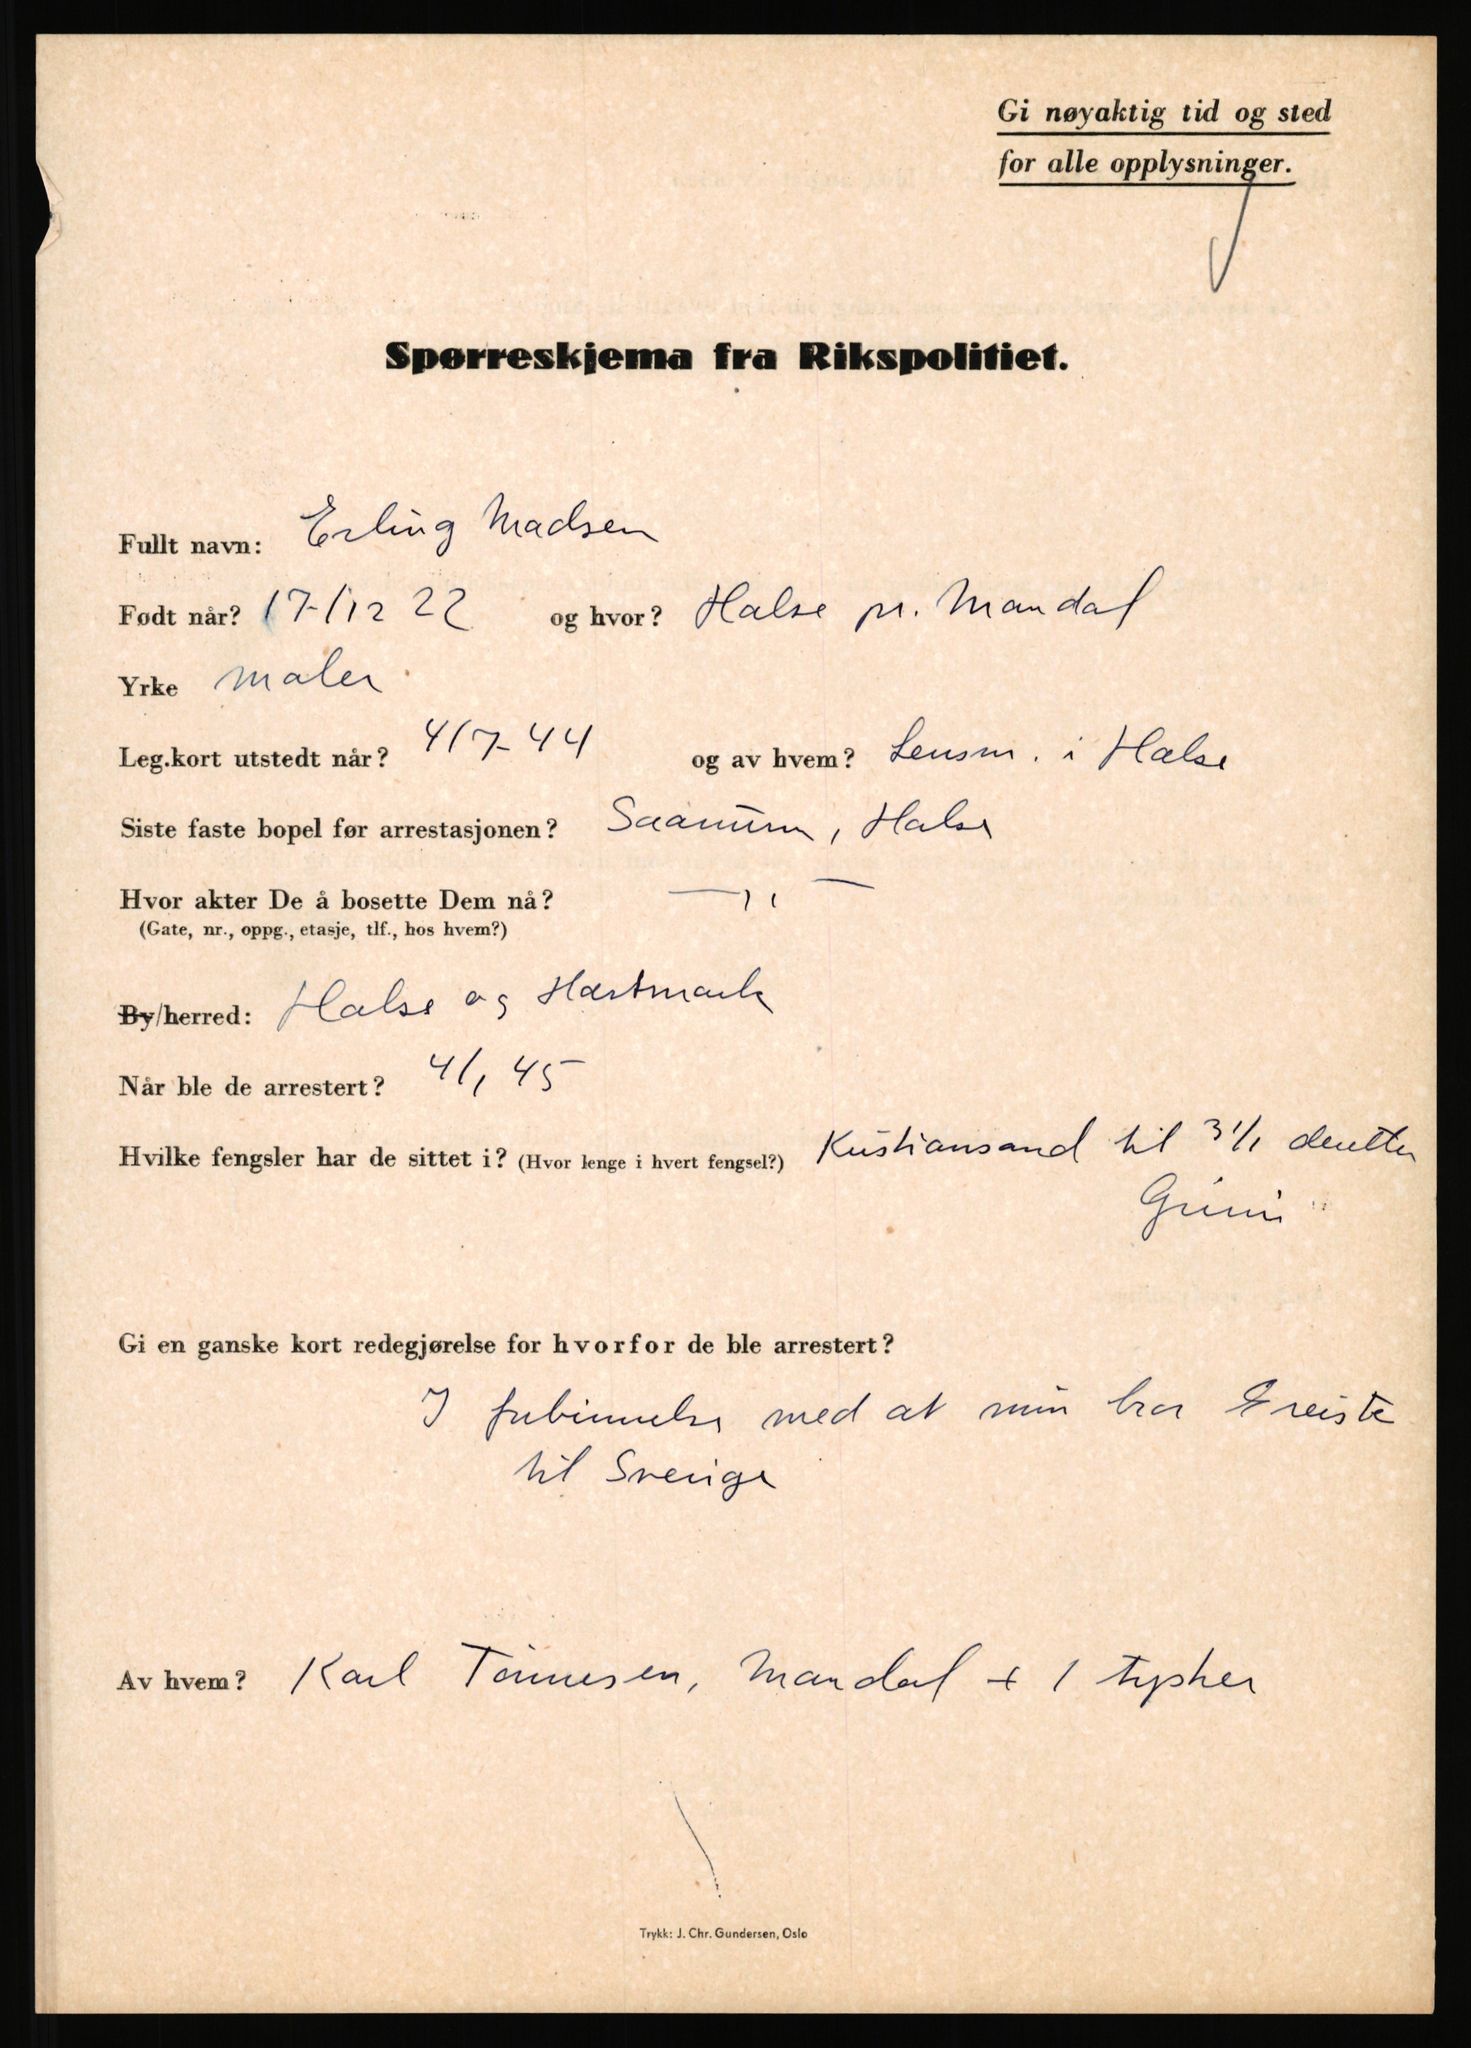 Gi nøyaktig tid og sted
for alle opplysninger.
Spørreskjema fra Rikspolitiet.
Fullt navn: Erling Madsen
Født når? 17-/12 22 og hvor? Halse pr. Mandal
Yrke Maler
Leg.kort utstedt når? 4/7-44 og av hvem? Lensm. i Halse
Siste faste bopel før arrestasjonen? Saanum, Halse
Hvor akter De å bosette Dem nå? — " —
(Gate, nr., oppg., etasje, tlf., hos hvem?)
By/herred: Halse og Hartmark
Når ble de arrestert? 4/1 45
Hvilke fengsler har de sittet i? (Hvor lenge i hvert fengsel?) Kristiansand til 31/1 deretter
Grini
Gi en ganske kort redegjørelse for hvorfor de ble arrestert?
I forbinnelse med at min bror reiste
til Sverige
Av hvem? Karl Tønnesen, Mandal + 1 tysker
Trykk: J. Chr. Gundersen, Oslo